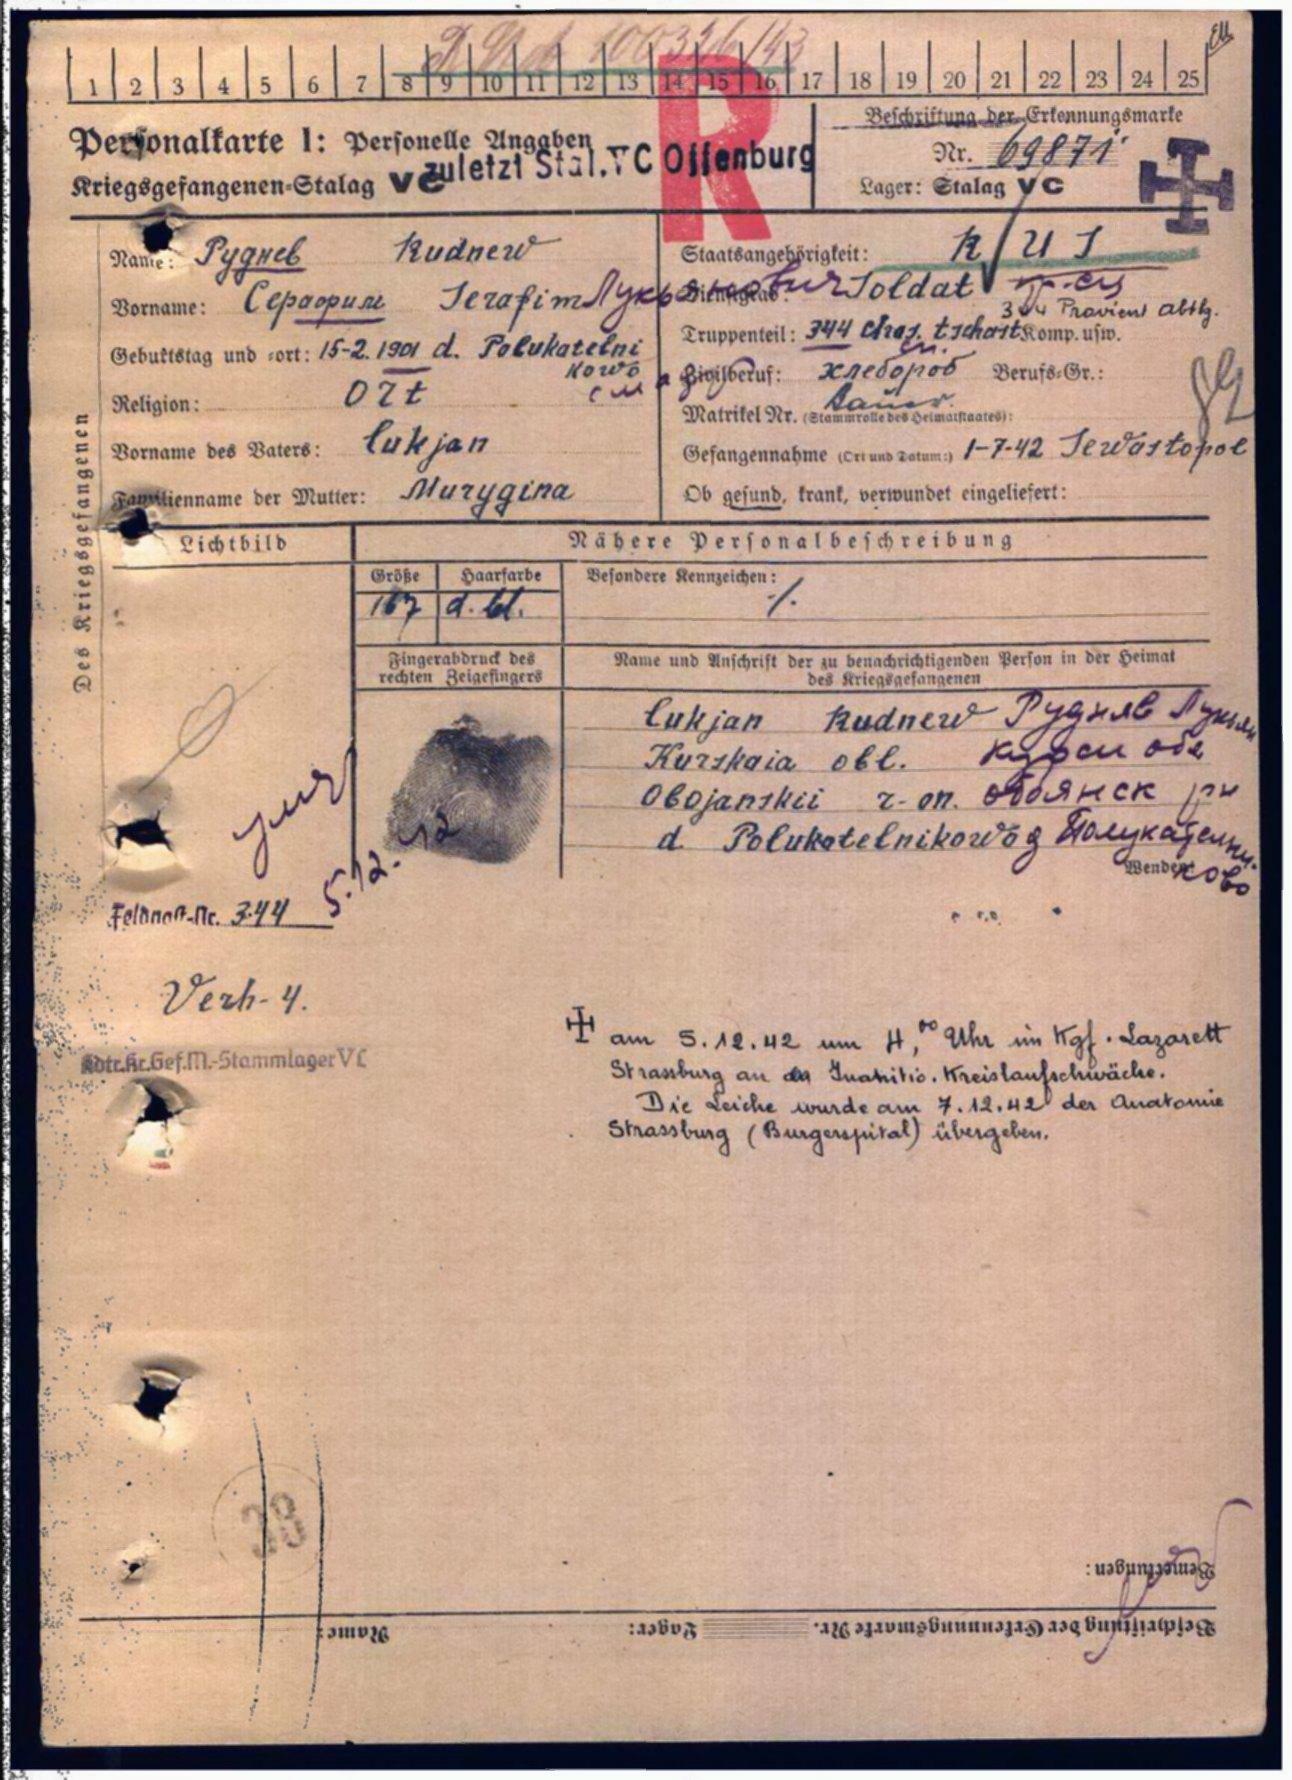 1 2 3 4 5 6 7 8 9 10 11 12 13 14 15 16 17 18 19 20 21 22 23 24 25
Personalkarte I: Personelle Angaben
Kriegsgefangenen-Stalag VC
zuletzt Stal. VC Offenburg
R
Beschriftung der Erkennungsmarke
Nr. 69871
Lager: Stalag VC
Des Kriegsgefangenen
Name: Руднев Rudnew
Vorname: Серафим Serafim Лукьянович
Geburtstag und -ort: 15-2. 1901 d. Polukatelni
kowo
Religion: Ort
Vorname des Vaters: Lukjan
Familienname der Mutter: Murygina
Staatsangehörigkeit: RUS
Dienstgrad: Soldat
344 Provient abtlg.
Truppenteil: 344 chas. tschast Komp. usw.
Zivilberuf: хлебороб Berufs-Gr.:
Bauer
Matrikel Nr. (Stammrolle des Heimatstaates):
Gefangennahme (Ort und Datum:) 1-7-42 Sewastopol
Ob gesund, krank, verwundet eingeliefert:
Lichtbild
Nähere Personalbeschreibung
Größe Haarfarbe Besondere Kennzeichen:
167 d. bl. ./.
Fingerabdruck des
rechten Zeigefingers
Name und Anschrift der zu benachrichtigenden Person in der Heimat
des Kriegsgefangenen
Lukjan Rudnew Рудняв Лукьян
Kurskaia obl. курск обл
Obojanskii r-on. обоянск рн
d. Polukatelnikowo д Полукателни-
ково
Wenden
умер
5.12.42
Feldpost-Nr. 344
Verh- 4.
Kdtr.Kr.Gef.M.-Stammlager VC
am 5.12.42 um 4,00 Uhr im Kgf. Lazarett
Strassburg an Inanitio. Kreislaufschwäche.
Die Leiche wurde am 7.12.42 der Anatomie
Strassburg (Burgerspital) übergeben.
Bemerkungen:
Beschriftung der Erkennungsmarke Nr. Lager: Name: